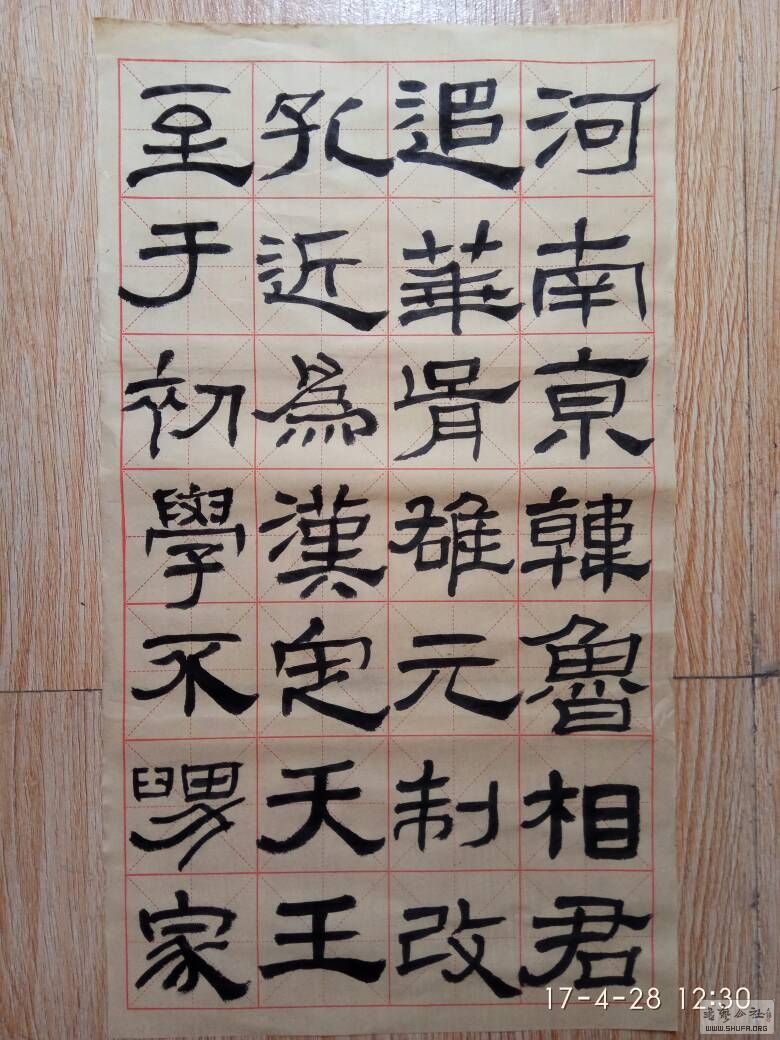 河南亰韓魯相君
追華胥雄元制改
孔近爲漢定天王
至于初學不家
17-4-28 12:30
書藝公社
WWW.SHUFA.ORG